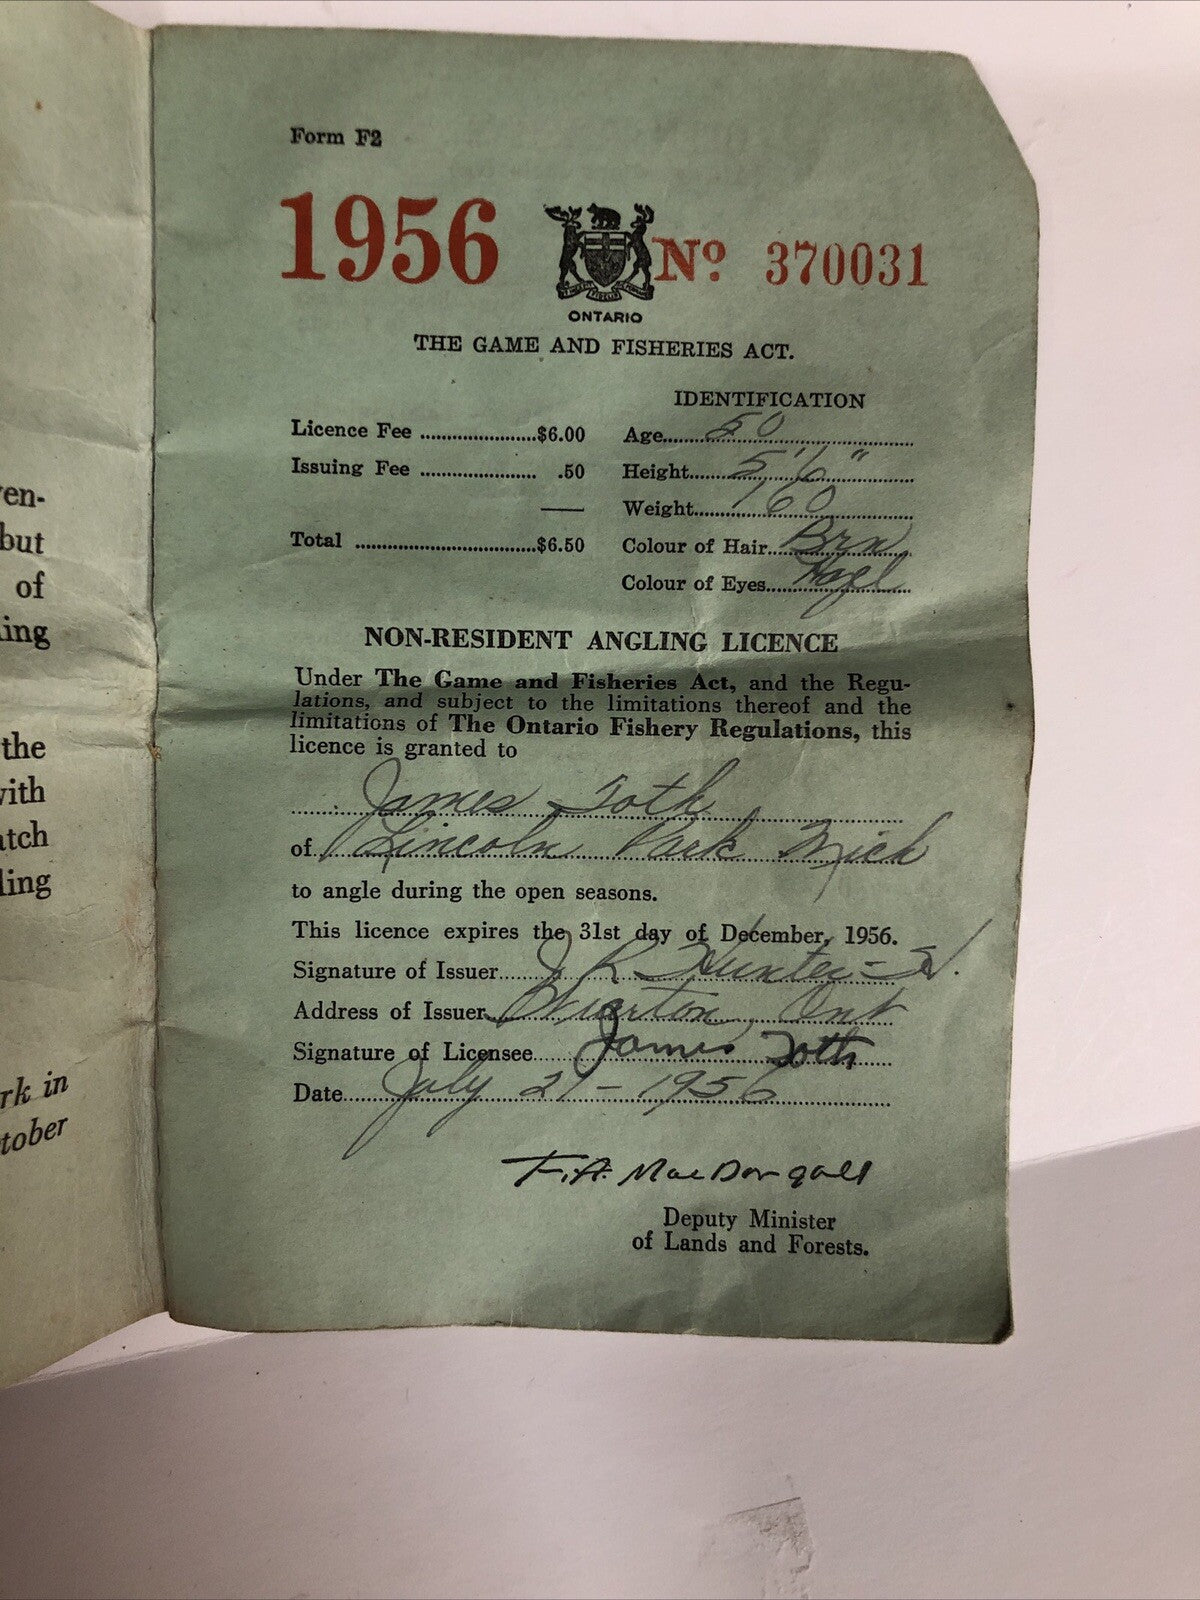 en-
but
of
ing
the
with
atch
ling
rk in
tober
Form F2
1956 No 370031
ONTARIO
THE GAME AND FISHERIES ACT.
IDENTIFICATION
Licence Fee ......................$6.00
Issuing Fee ...................... .50
Total ..................................$6.50
Age........50
Height......5'6"
Weight......160
Colour of Hair...Brn
Colour of Eyes...Hazl
NON-RESIDENT ANGLING LICENCE
Under The Game and Fisheries Act, and the Regu-
lations, and subject to the limitations thereof and the
limitations of The Ontario Fishery Regulations, this
licence is granted to
James Toth
of Lincoln Park Mich
to angle during the open seasons.
This licence expires the 31st day of December, 1956.
Signature of Issuer.....J R Hunter
Address of Issuer...Wiarton, Ont
Signature of Licensee.....James Toth
Date.....July 21-1956
F.A. MacDougall
Deputy Minister
of Lands and Forests.